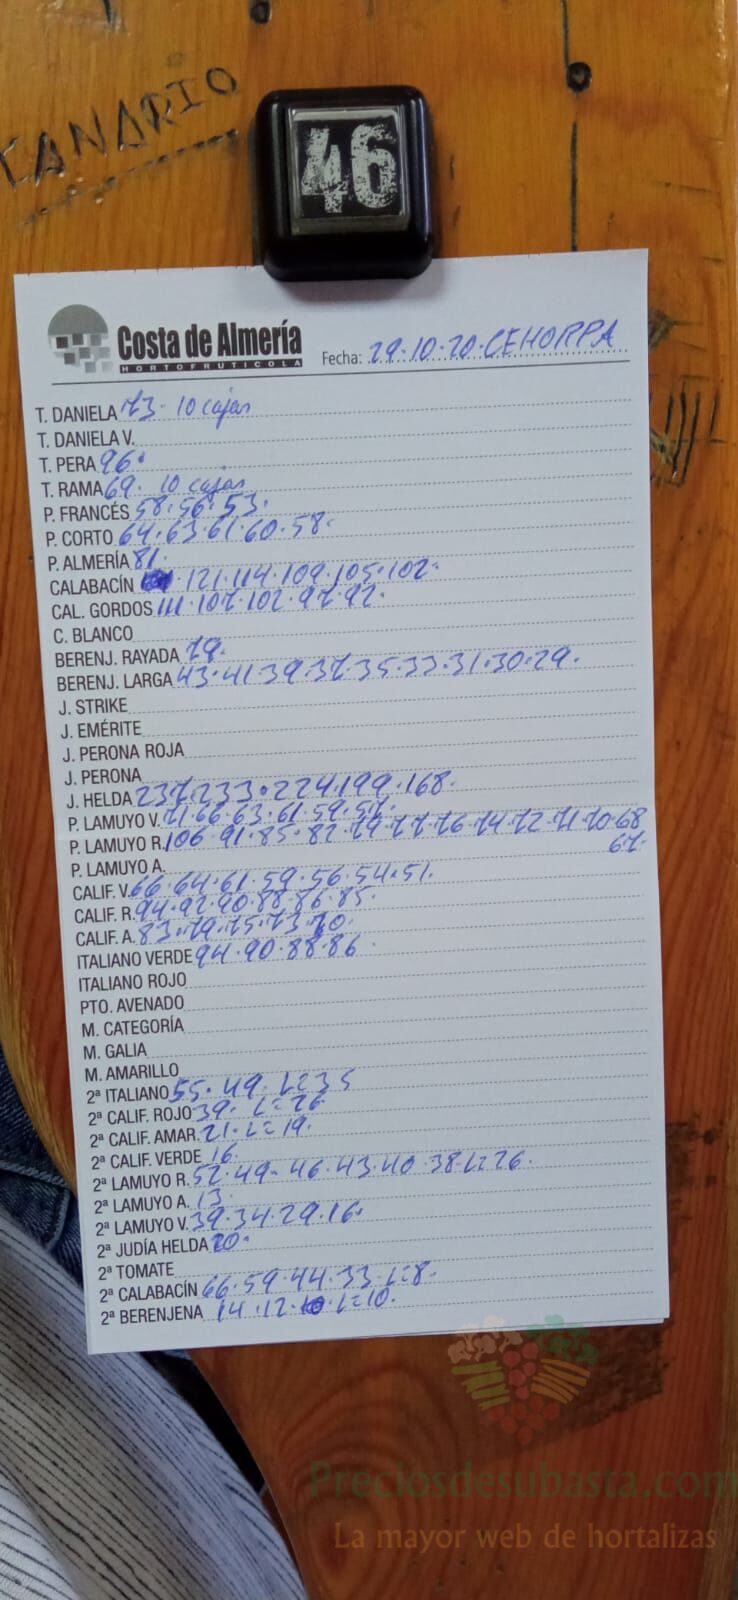 CANARIO
46
Costa de Almería
HORTOFRUTICOLA
Fecha: 29-10-20-CEHORPA
T. DANIELA 73- 10 cajas
T. DANIELA V.
T. PERA 96.
T. RAMA 69. 10 cajas
P. FRANCÉS 58.56.53.
P. CORTO 64.63.61.60.58.
P. ALMERÍA 81.
CALABACÍN 121.114.109.105.102.
CAL. GORDOS 111.107.102.97.92.
C. BLANCO
BERENJ. RAYADA 79.
BERENJ. LARGA 43.41.39.37.35.33.31.30.29.
J. STRIKE
J. EMÉRITE
J. PERONA ROJA
J. PERONA
J. HELDA 237.233.224.199.168.
P. LAMUYO V. 71.66.63.61.59.57.
P. LAMUYO R. 106.91.85.82.79.77.76.74.72.71.70.68
67.
P. LAMUYO A.
CALIF. V. 66.64.61.59.56.54.51.
CALIF. R. 94.92.90.88.86.85.
CALIF. A. 83.79.75.73.70.
ITALIANO VERDE 94.90.88.86.
ITALIANO ROJO
PTO. AVENADO
M. CATEGORÍA
M. GALIA
M. AMARILLO
2ª ITALIANO 55. 49. L=35
2ª CALIF. ROJO 39. L=26
2ª CALIF. AMAR. 21. L=19.
2ª CALIF. VERDE 16.
2ª LAMUYO R. 52.49-46.43.40.38.L=26.
2ª LAMUYO A. 13
2ª LAMUYO V. 39.34.29.16.
2ª JUDÍA HELDA 20.
2ª TOMATE
2ª CALABACÍN 66.59.44.33.L=8.
2ª BERENJENA 14.12.10 L=10.
Preciosdesubasta.com
La mayor web de hortalizas